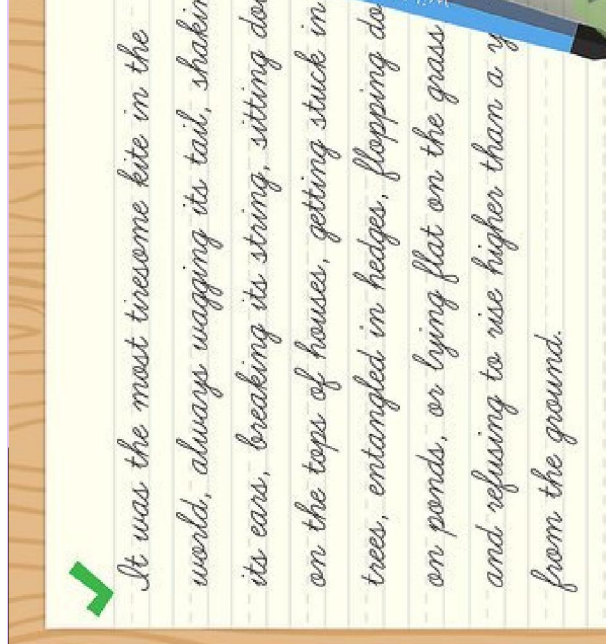 It was the most tiresome kite in the
world, always wagging its tail, shakin
its ears, breaking its string, sitting do
on the tops of houses, getting stuck in
trees, entangled in hedges, flopping do
on ponds, or lying flat on the grass
and refusing to rise higher than a y
from the ground.